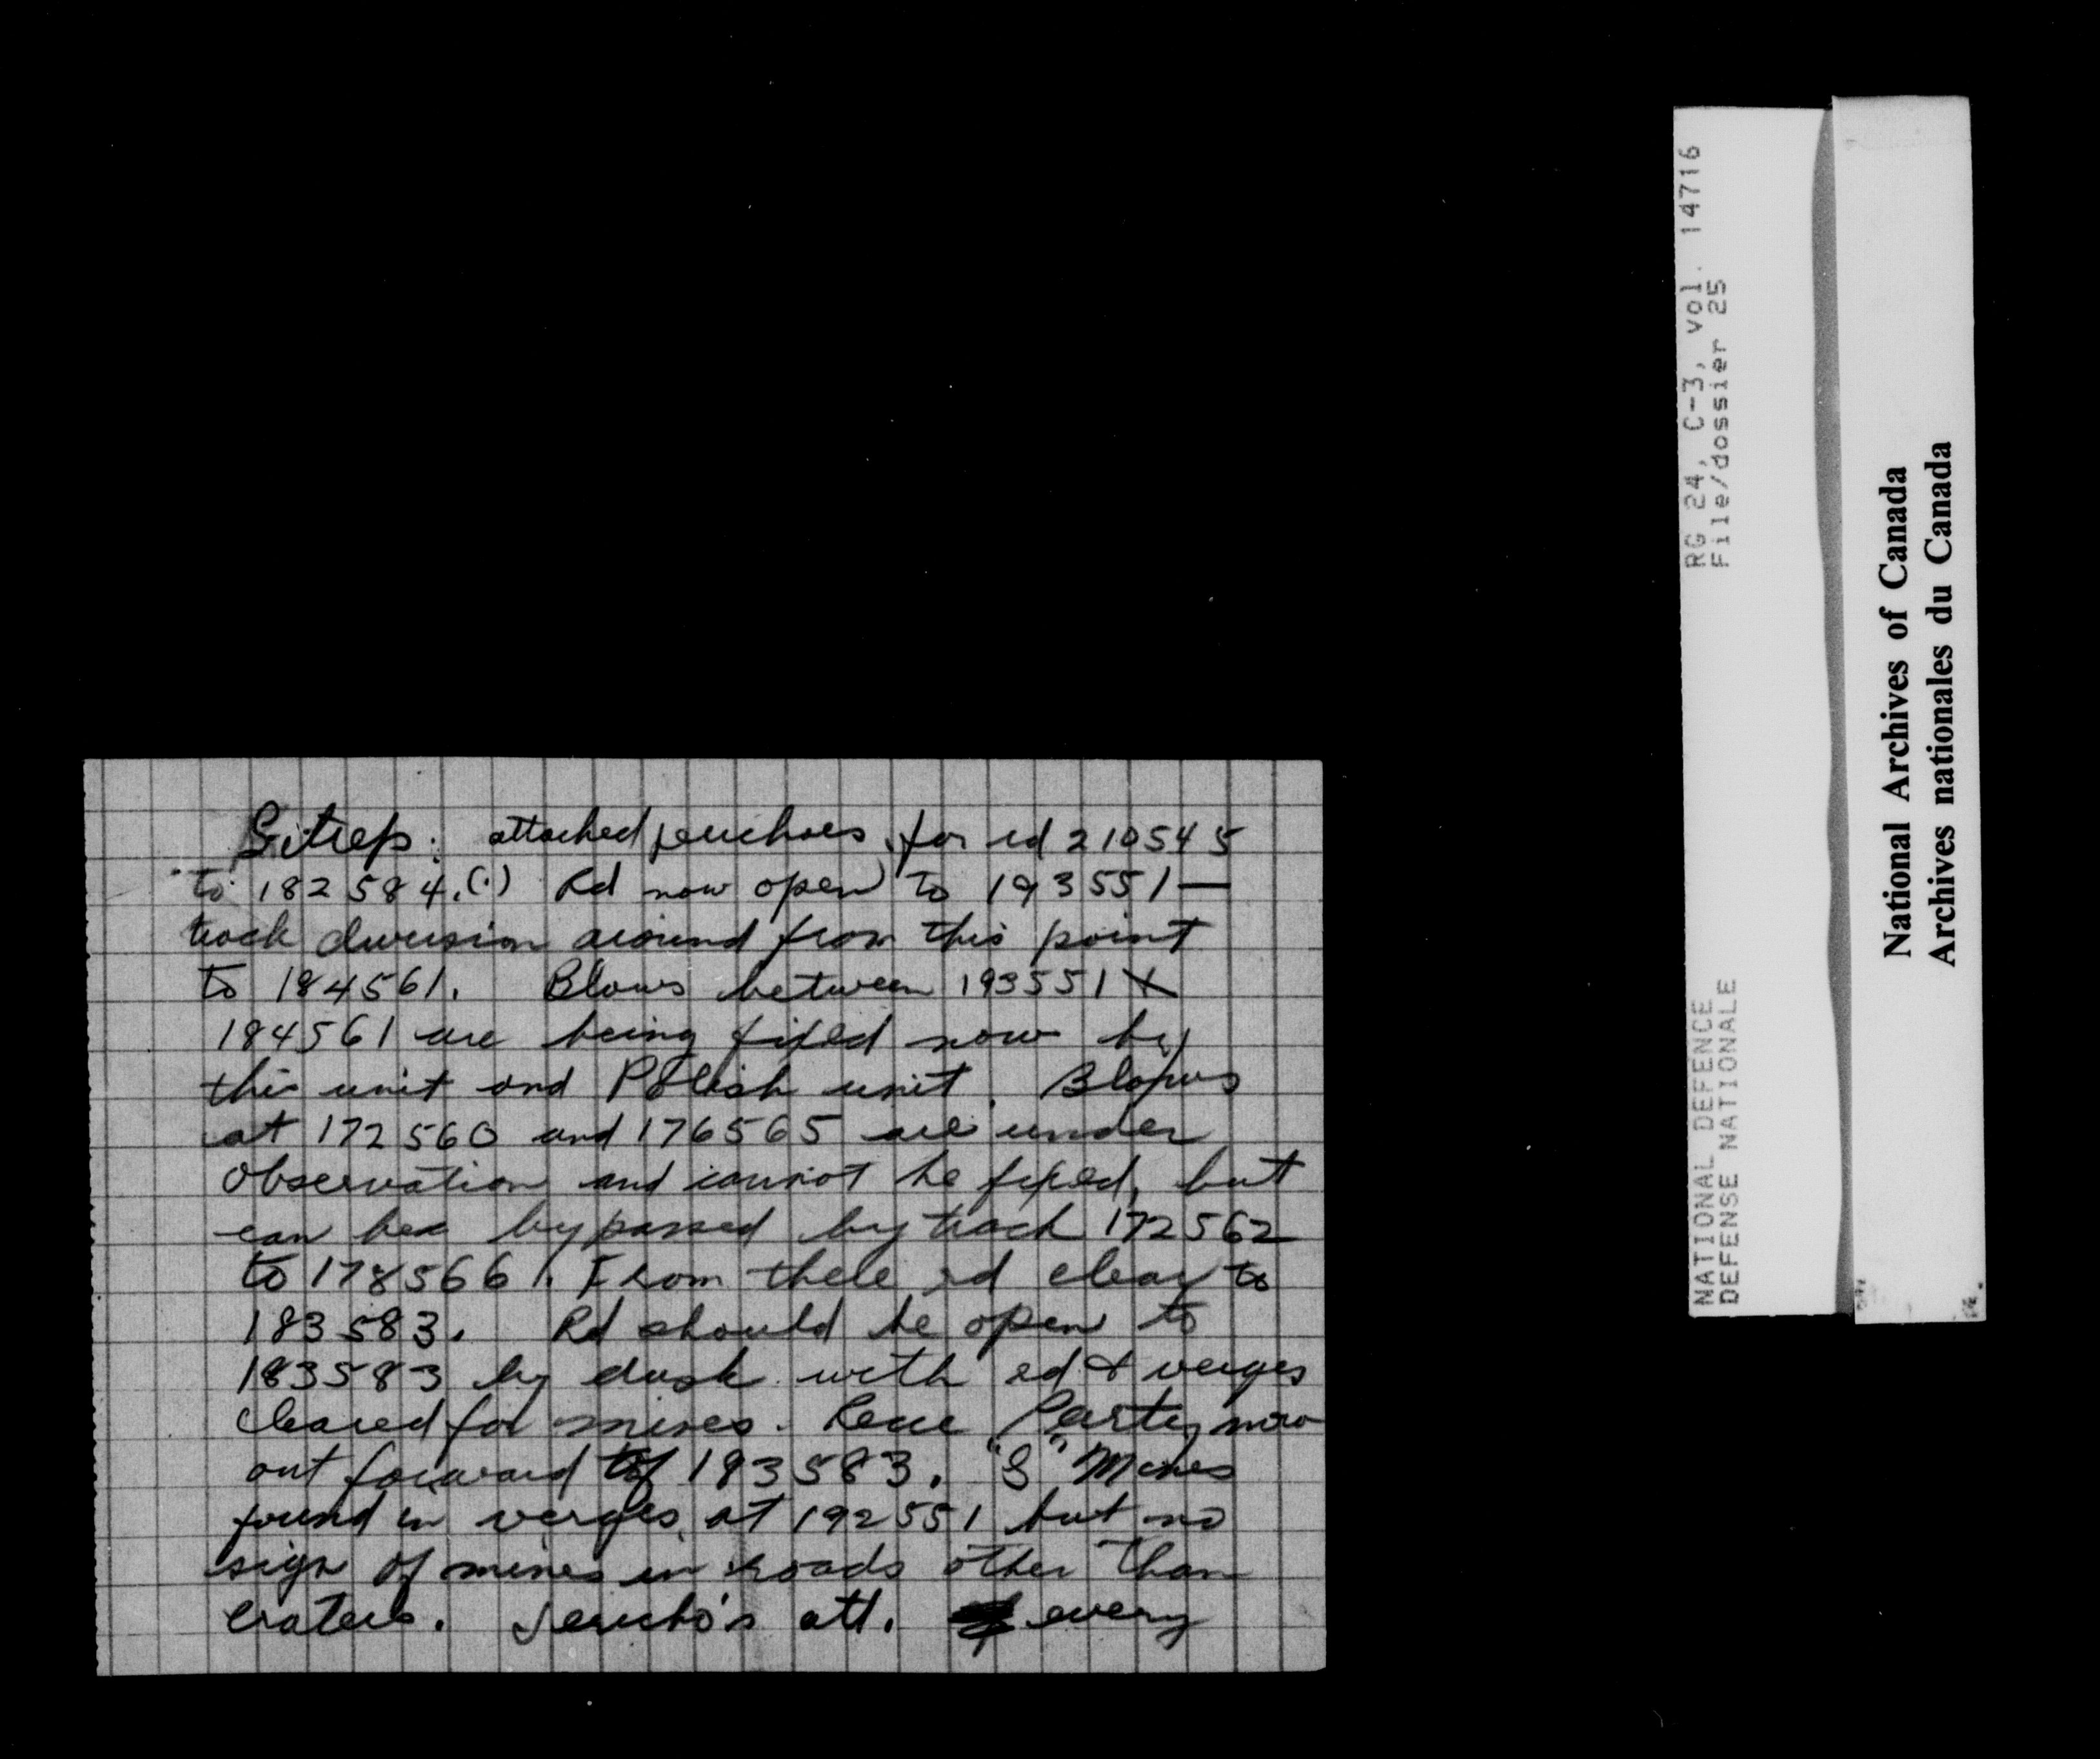 Sitrep: attached jerichoes for rd 210545
to 182584.(.) Rd now open to 193551—
track diversion around from this point
to 184561. Blows between 193551 +
184561 are being fixed now by
this unit and Polish unit. Blows
at 172560 and 176565 are under
observation and cannot be fixed, but
can be bypassed by track 172562
to 178566. From there rd clear to
183583. Rd should be open to
183583 by dusk with rd + verges
cleared for mines. Recce Party now
out forward of 183583. "S" Mines
found in verges at 192551 but no
sign of mines in roads other than
craters. Jericho's att. every
RG 24, C-3, vol. 14716
File/dossier 25
NATIONAL DEFENCE
DEFENSE NATIONALE
National Archives of Canada
Archives nationales du Canada